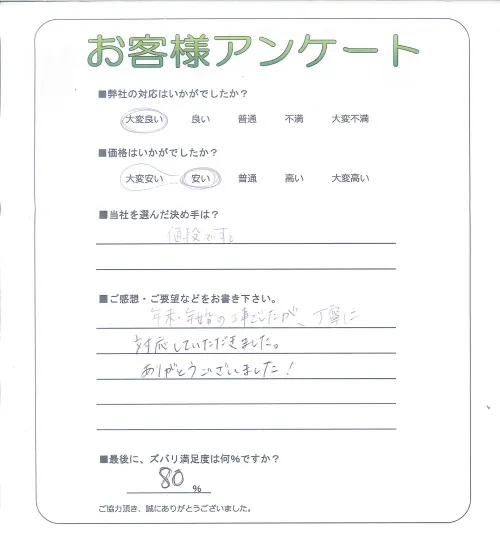 お客様アンケート
■弊社の対応はいかがでしたか？
大変良い 良い 普通 不満 大変不満
■価格はいかがでしたか？
大変安い 安い 普通 高い 大変高い
■当社を選んだ決め手は？
値段です
■ご感想・ご要望などをお書き下さい。
年末・年始の工事でしたが、丁寧に
対応していただきました。
ありがとうございました！
■最後に、ズバリ満足度は何%ですか？
80 %
ご協力頂き、誠にありがとうございました。